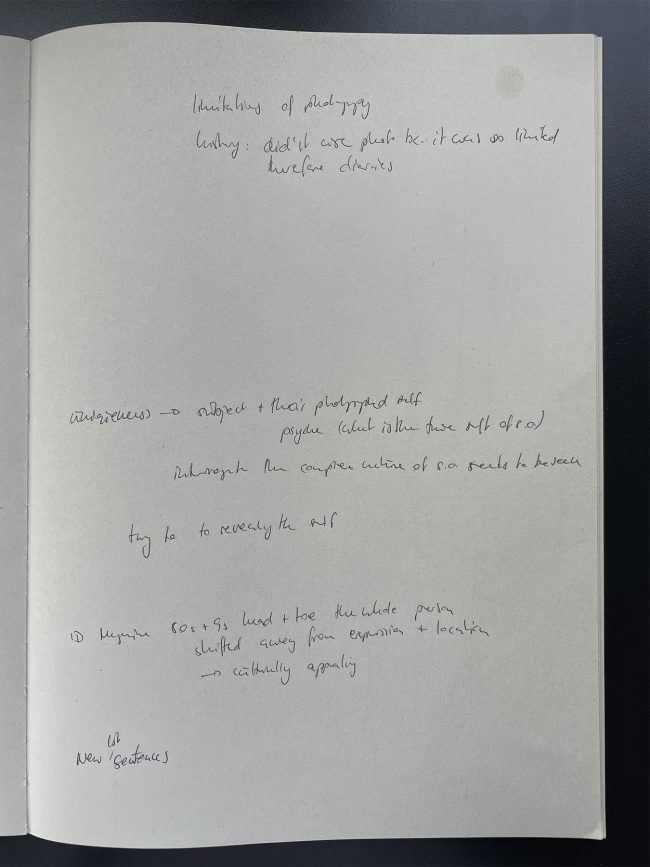 limitations of photography
history: didn't use photo bc. it was so limited
therefore diaries
uniqueness → subject + their photographed self
psyche (what is the true self of s.o)
interrogate the complex nature of s.o wants to be seen
try to to revealing the self
ID Magazine 80s + 90s head + toe the whole person
shifted away from expression + location
→ culturally appealing
New sentences